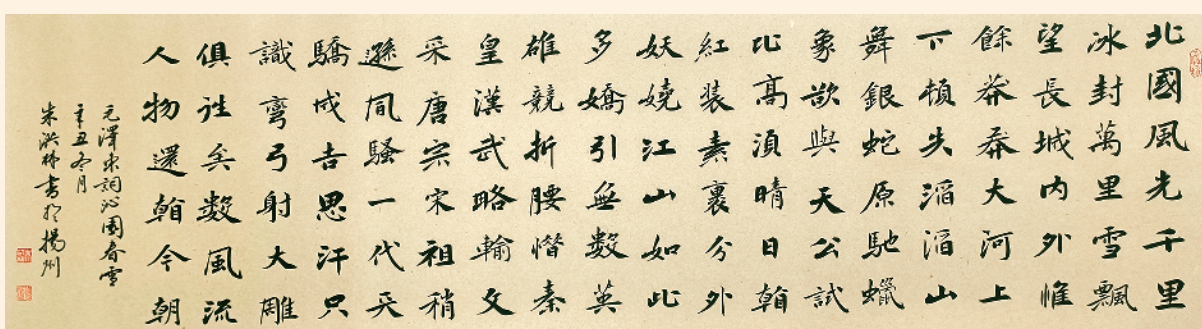 北國風光千里
冰封萬里雪飄
望長城内外惟
餘莽莽大河上
下頓失滔滔山
舞銀蛇原馳蠟
象欲與天公試
比高須晴日看
紅装素裹分外
妖嬈江山如此
多嬌引無數英
雄競折腰惜秦
皇漢武略輸文
采唐宗宋祖稍
遜風騷一代天
驕成吉思汗只
識彎弓射大雕
俱往矣數風流
人物還看今朝
毛澤東詞沁園春雪
辛丑冬月
朱洪書於揚州